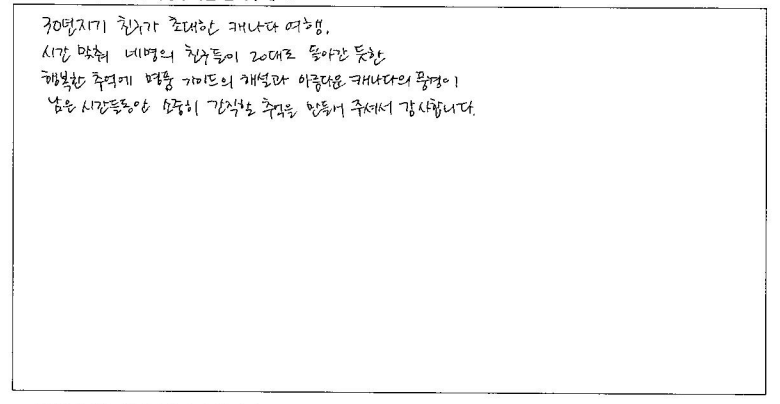 30년지기 친구가 초대한 캐나다 여행,
시간 맞춰 네명의 친구들이 20대로 돌아간 듯한
행복한 추억에 명품 가이드의 해설과 아름다운 캐나다의 풍경이
남은 시간들동안 소중히 간직할 추억을 만들어 주셔서 감사합니다.